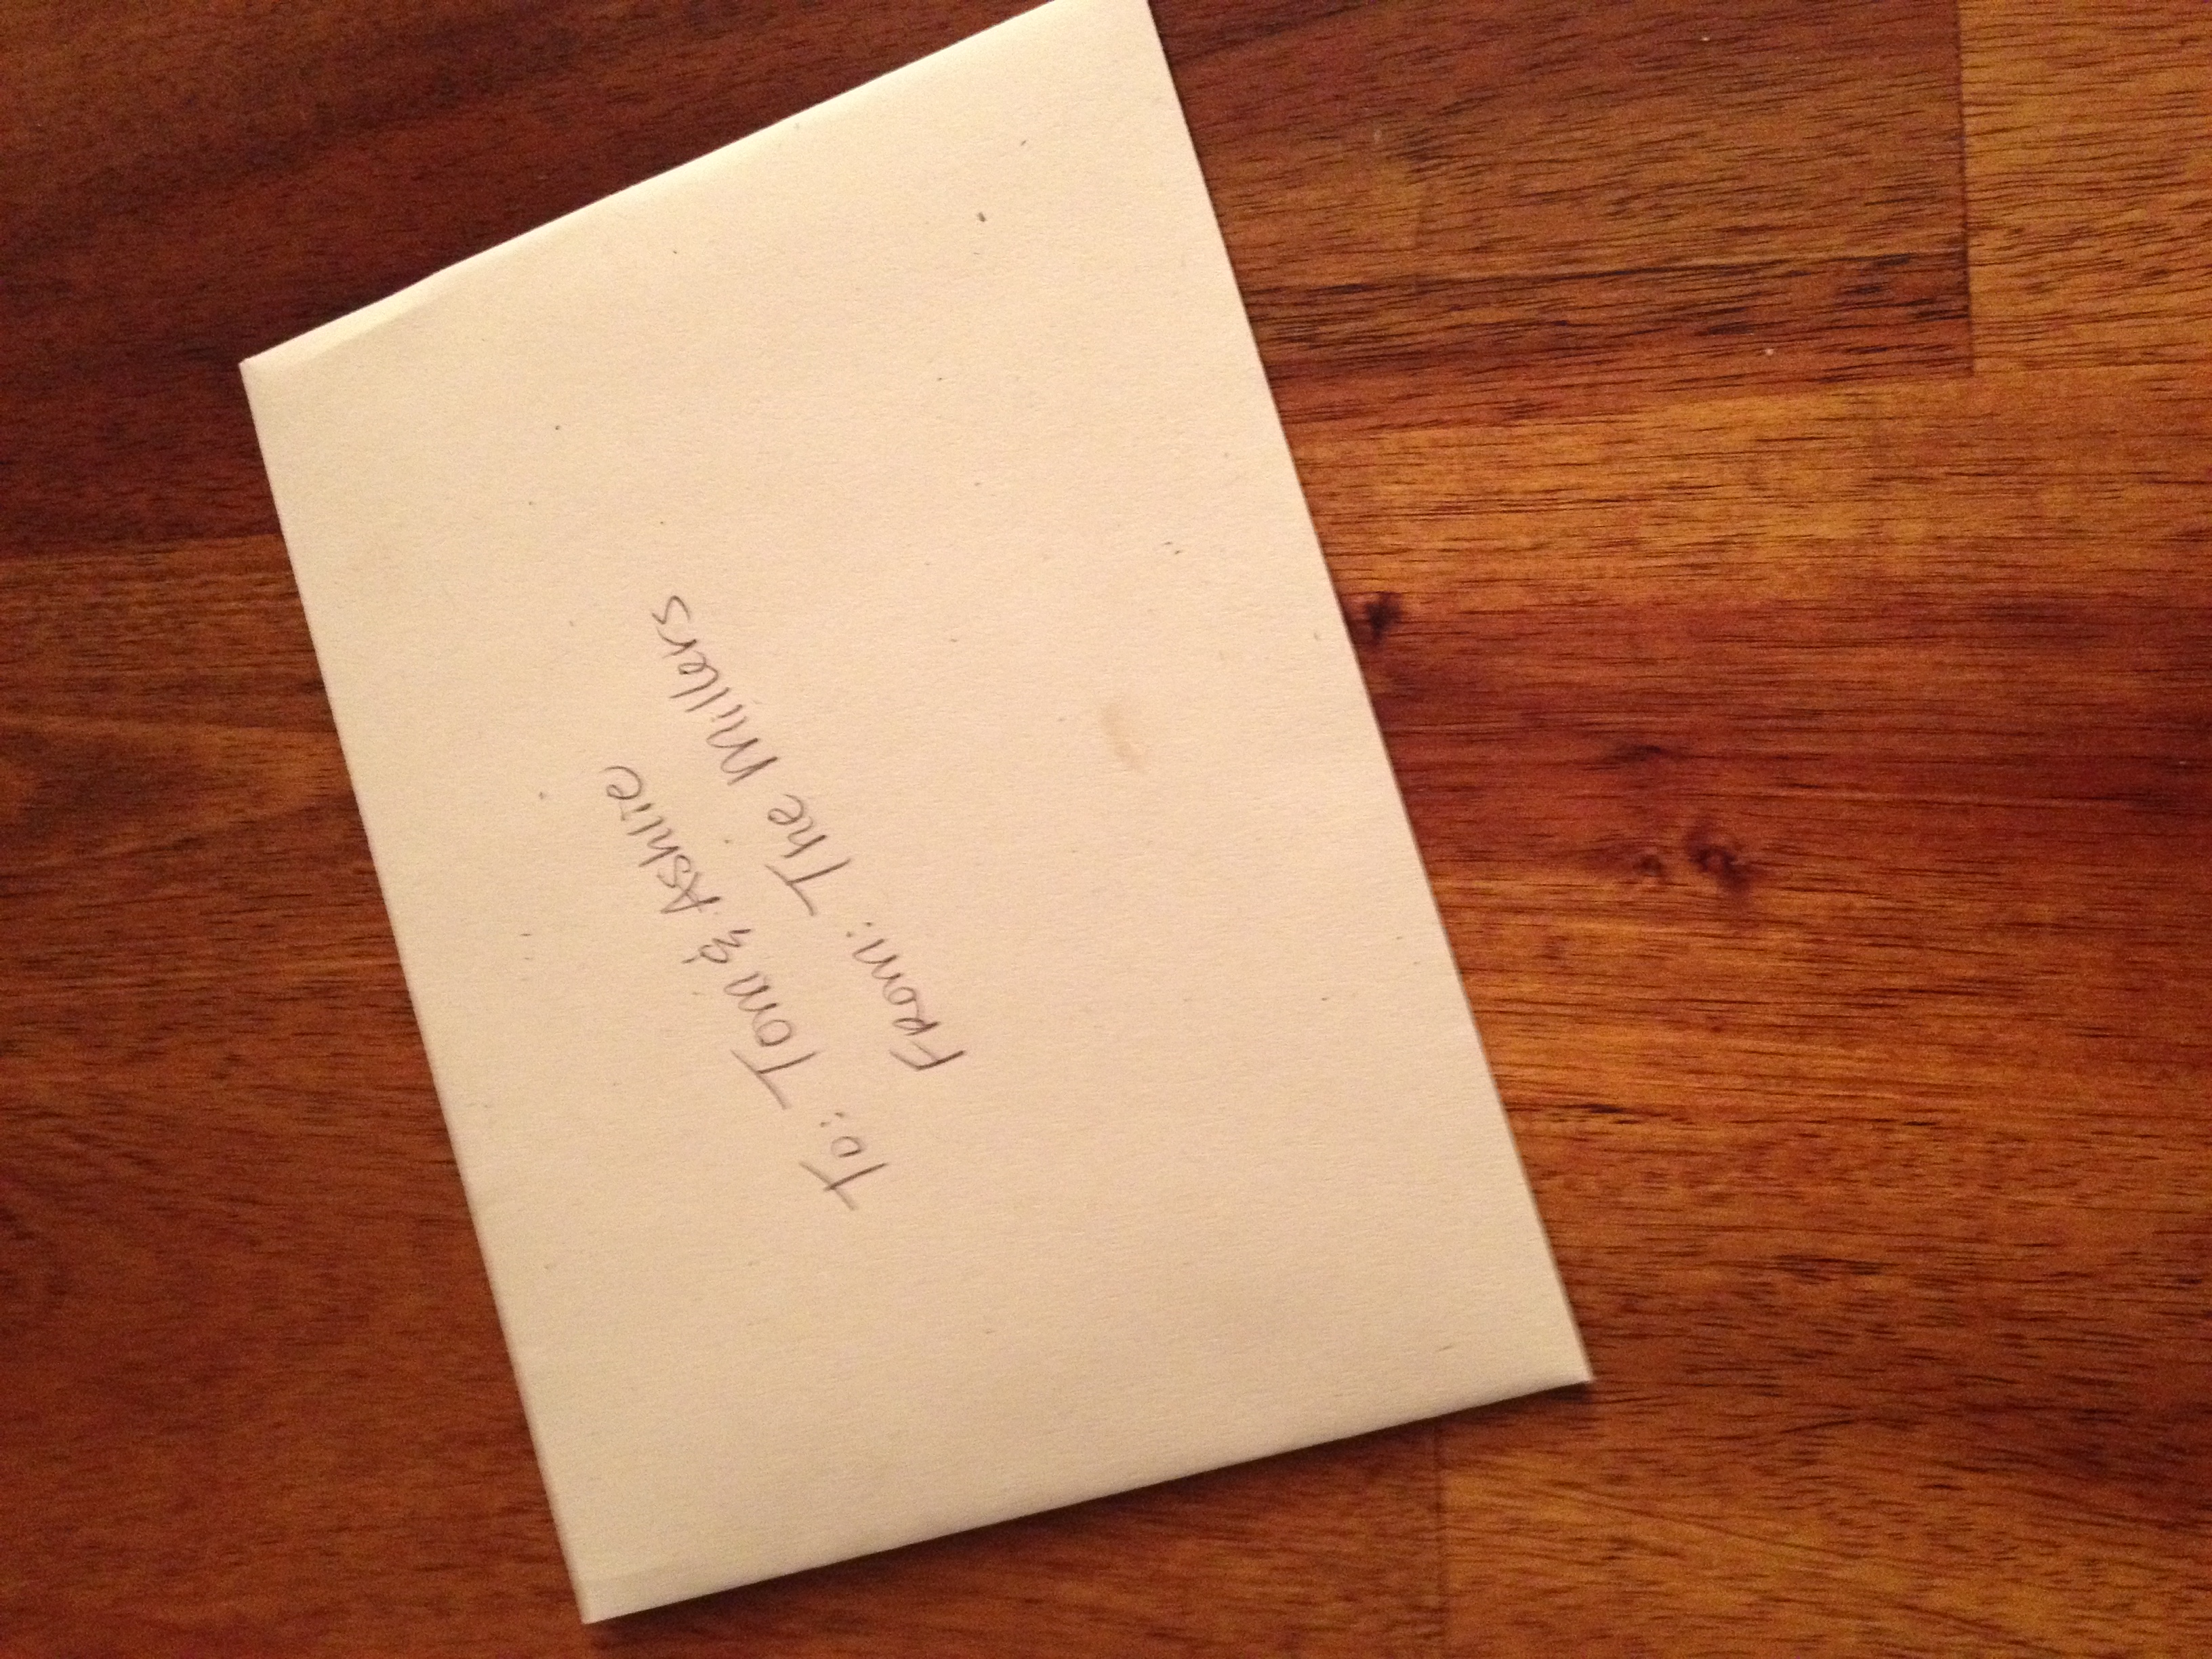 To: Tom & Ashlie
From: The Millers